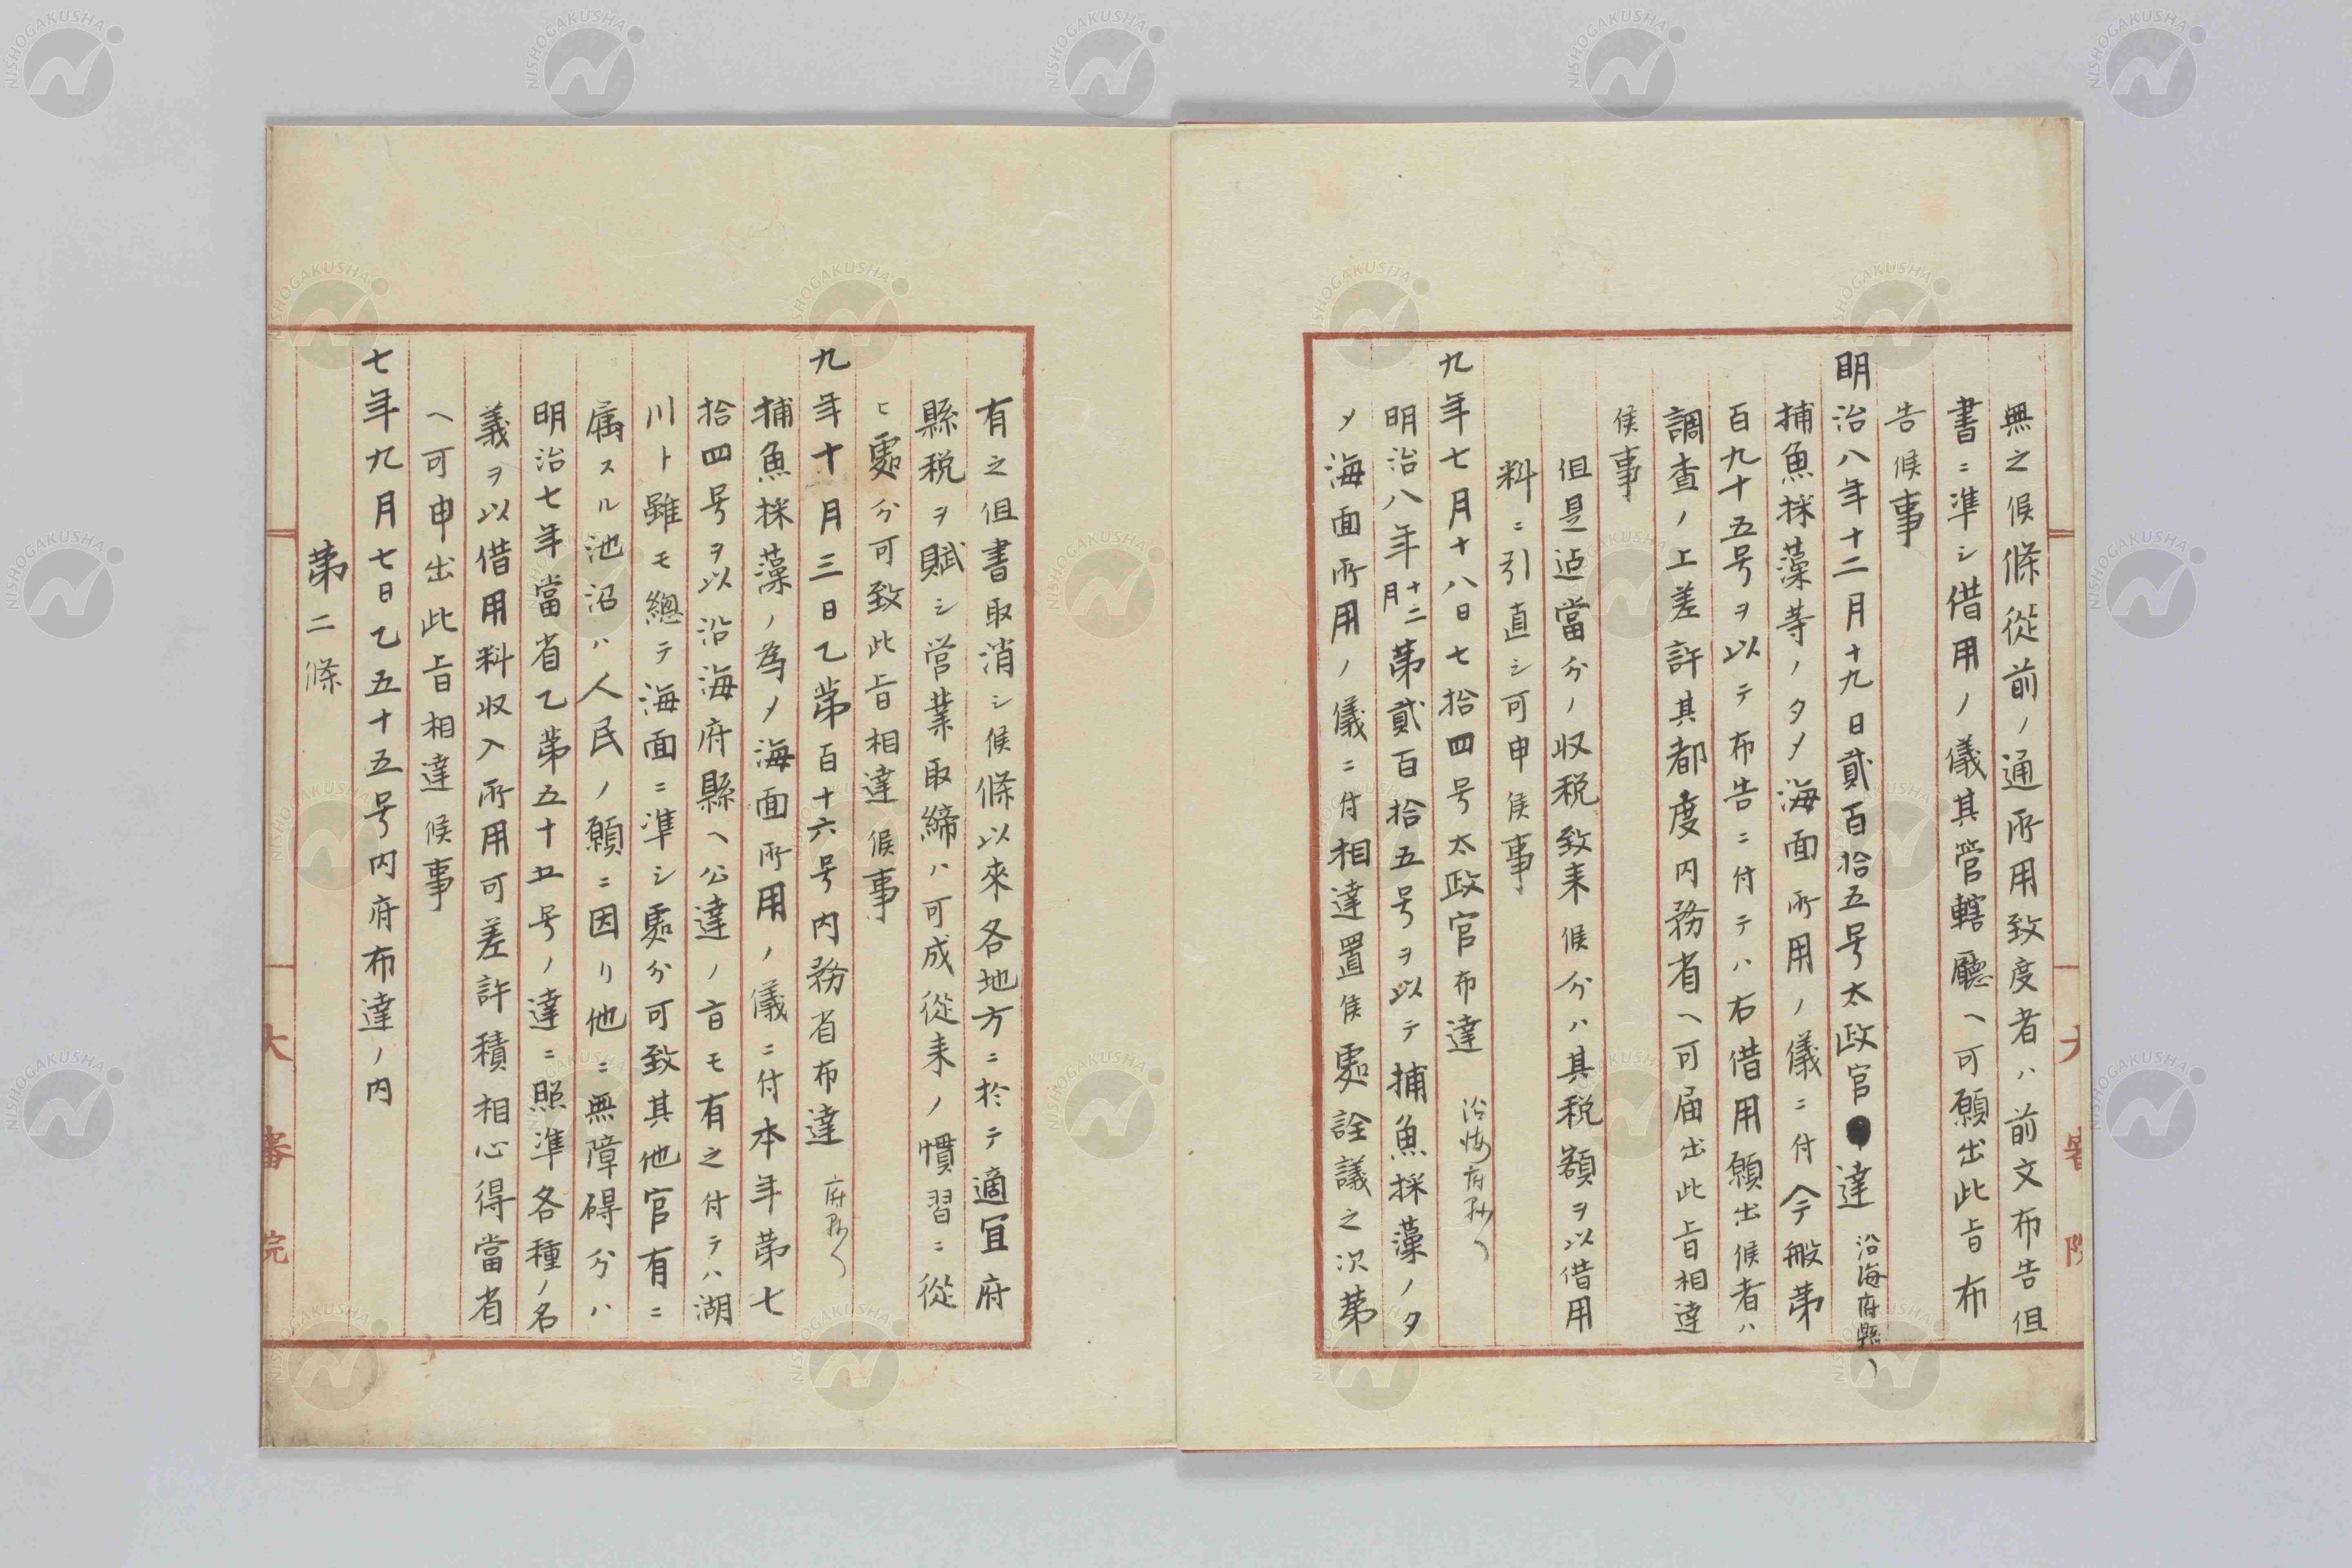 無之候條從前ノ通所用致度者ハ前文布告但
書ニ準シ借用ノ儀其管轄廳ヘ可願出此旨布
告候事
明治八年十二月十九日貳百拾五号太政官達 沿海府縣ヘ
捕魚採藻等ノタメ海面所用ノ儀ニ付今般第
百九十五号ヲ以テ布告ニ付テハ右借用願出候者ハ
調査ノ上差許其都度内務省ヘ可届出此旨相達
候事
但是迠當分ノ収税致来候分ハ其税額ヲ以借用
料ニ引直シ可申候事
九年七月十八日七拾四号太政官布達 沿海府縣ヘ
明治八年十二月第貳百拾五号ヲ以テ捕魚採藻ノタ
メ海面所用ノ儀ニ付相達置候處詮議之次第
有之但書取消シ候條以來各地方ニ於テ適宜府
縣税ヲ賦シ営業取締ハ可成從来ノ慣習ニ從
ヒ處分可致此旨相達候事
九年十月三日乙第百十六号内務省布達 府縣ヘ
捕魚採藻ノ為メ海面所用ノ儀ニ付本年第七
拾四号ヲ以沿海府縣ヘ公達ノ旨モ有之付テハ湖
川ト雖モ總テ海面ニ準シ處分可致其他官有ニ
属スル池沼ハ人民ノ願ニ因リ他ニ無障碍分ハ
明治七年當省乙第五十五号ノ達ニ照準各種ノ名
義ヲ以借用料収入所用可差許積相心得當省
ヘ可申出此旨相達候事
七年九月七日乙五十五号内府布達ノ内
第二條
大審院
大審院
NISHOGAKUSHA